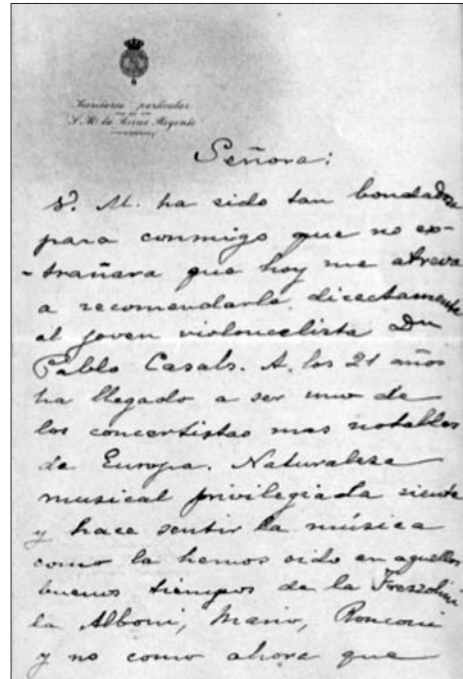 Secretaría particular
DE
S. M. la Reina Regente
Señora:
V. M. ha sido tan bondadosa
para conmigo que no ex-
-trañara que hoy me atreva
a recomendarle directamente
al joven violoncelista Dn
Pablo Casals. A los 21 años
ha llegado a ser uno de
los concertistas mas notables
de Europa. Naturaleza
musical privilegiada siente
y hace sentir la música
como la hemos oido en aquellos
buenos tiempos de la Frezzolini
la Alboni, Mario, Ronconi
y no como ahora que